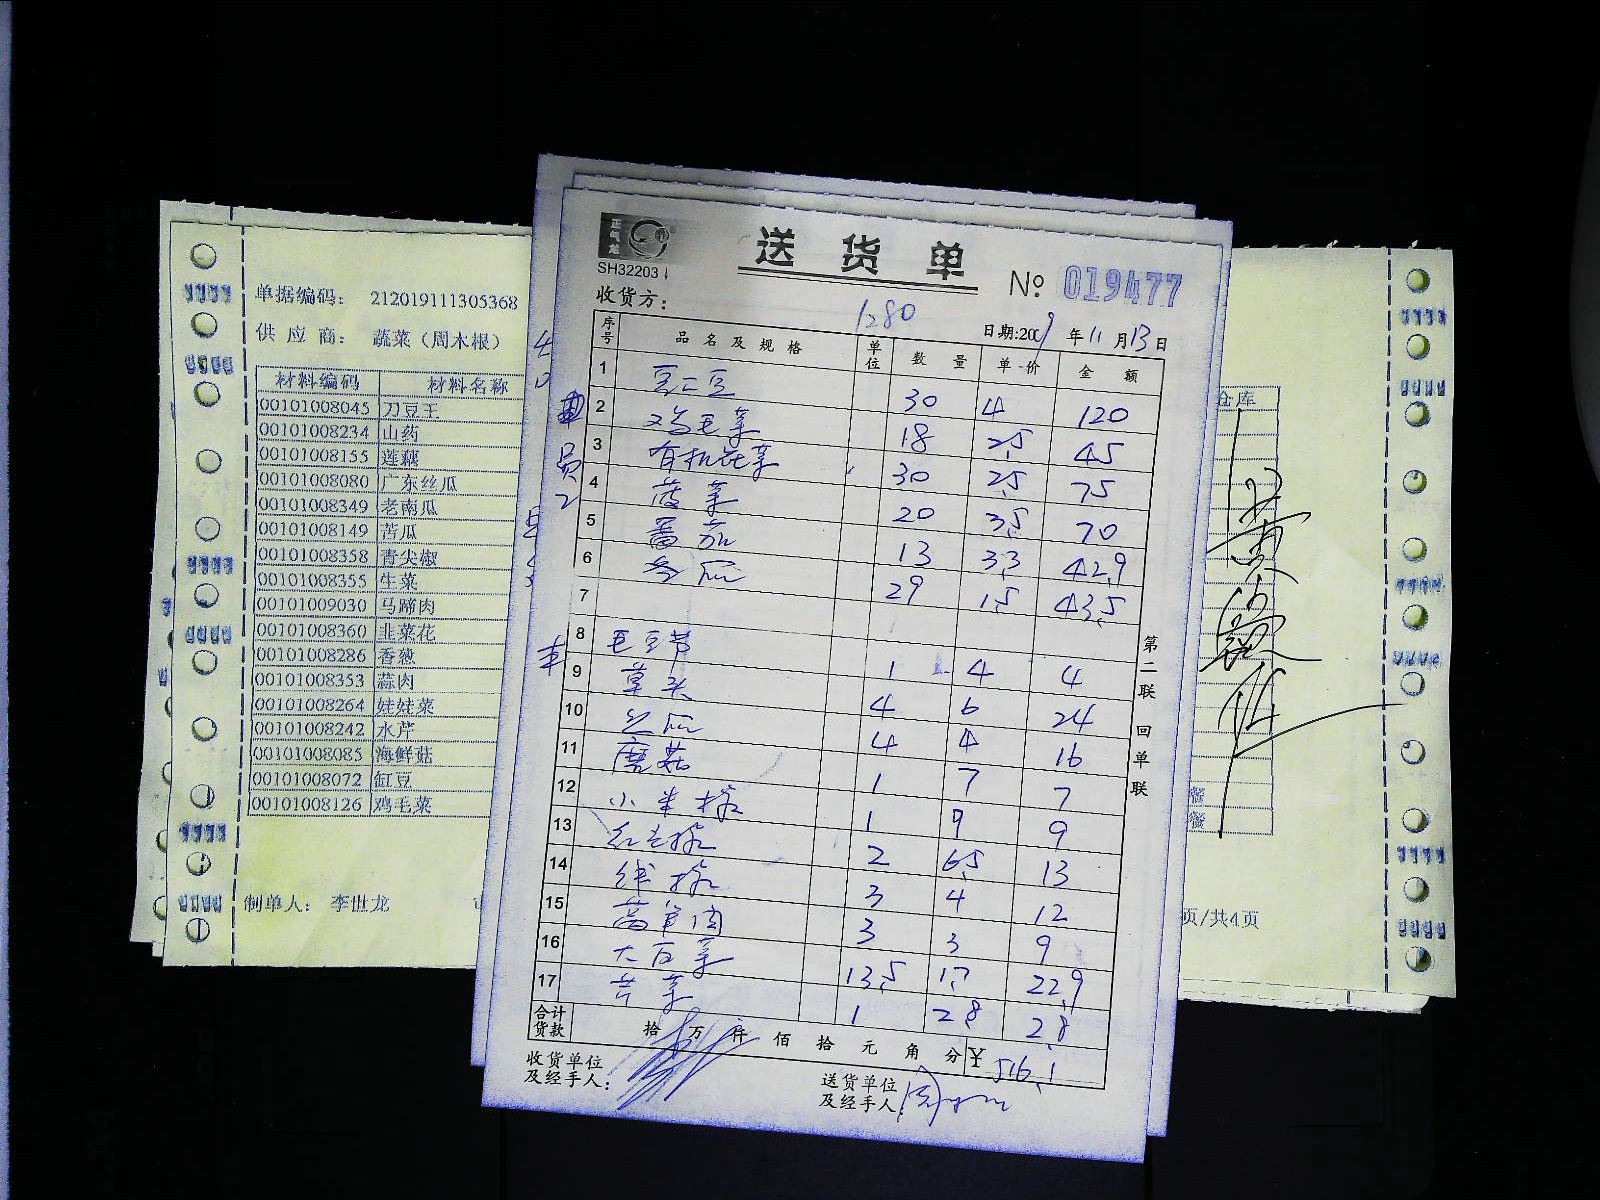 单据编码： 212019111305368
供 应 商： 蔬菜（周木根）
材料编码 材料名称
00101008045 刀豆王
00101008234 山药
00101008155 莲藕
00101008080 广东丝瓜
00101008349 老南瓜
00101008149 苦瓜
00101008358 青尖椒
00101008355 生菜
00101009030 马蹄肉
00101008360 韭菜花
00101008286 香葱
00101008353 蒜肉
00101008264 娃娃菜
00101008242 水芹
00101008085 海鲜菇
00101008072 缸豆
00101008126 鸡毛菜
制单人： 李世龙
正气龙
SH32203
送货单
№ 019477
收货方：
1280
日期:2009年11月13日
序号 品名及规格 单位 数量 单价 金额
1 30 4 120
2 鸡毛菜 18 2.5 45
3 有机花菜 30 2.5 75
4 菠菜 20 3.5 70
5 番茄 13 3.3 42.9
6 冬瓜 29 1.5 43.5
7
8 毛豆节 1 4 4
9 草头 4 6 24
10 4 4 16
11 磨菇 1 7 7
12 小米椒 1 9 9
13 红尖椒 2 6.5 13
14 线椒 3 4 12
15 莴笋肉 3 3 9
16 大白菜 13.5 1.7 22.9
17 芹菜 1 2.8 2.8
合计货款 拾 万 仟 佰 拾 元 角 分 ¥ 516.1
收货单位及经手人：
送货单位及经手人
第二联 回单联
员工
仓库
餐
餐
页/共4页